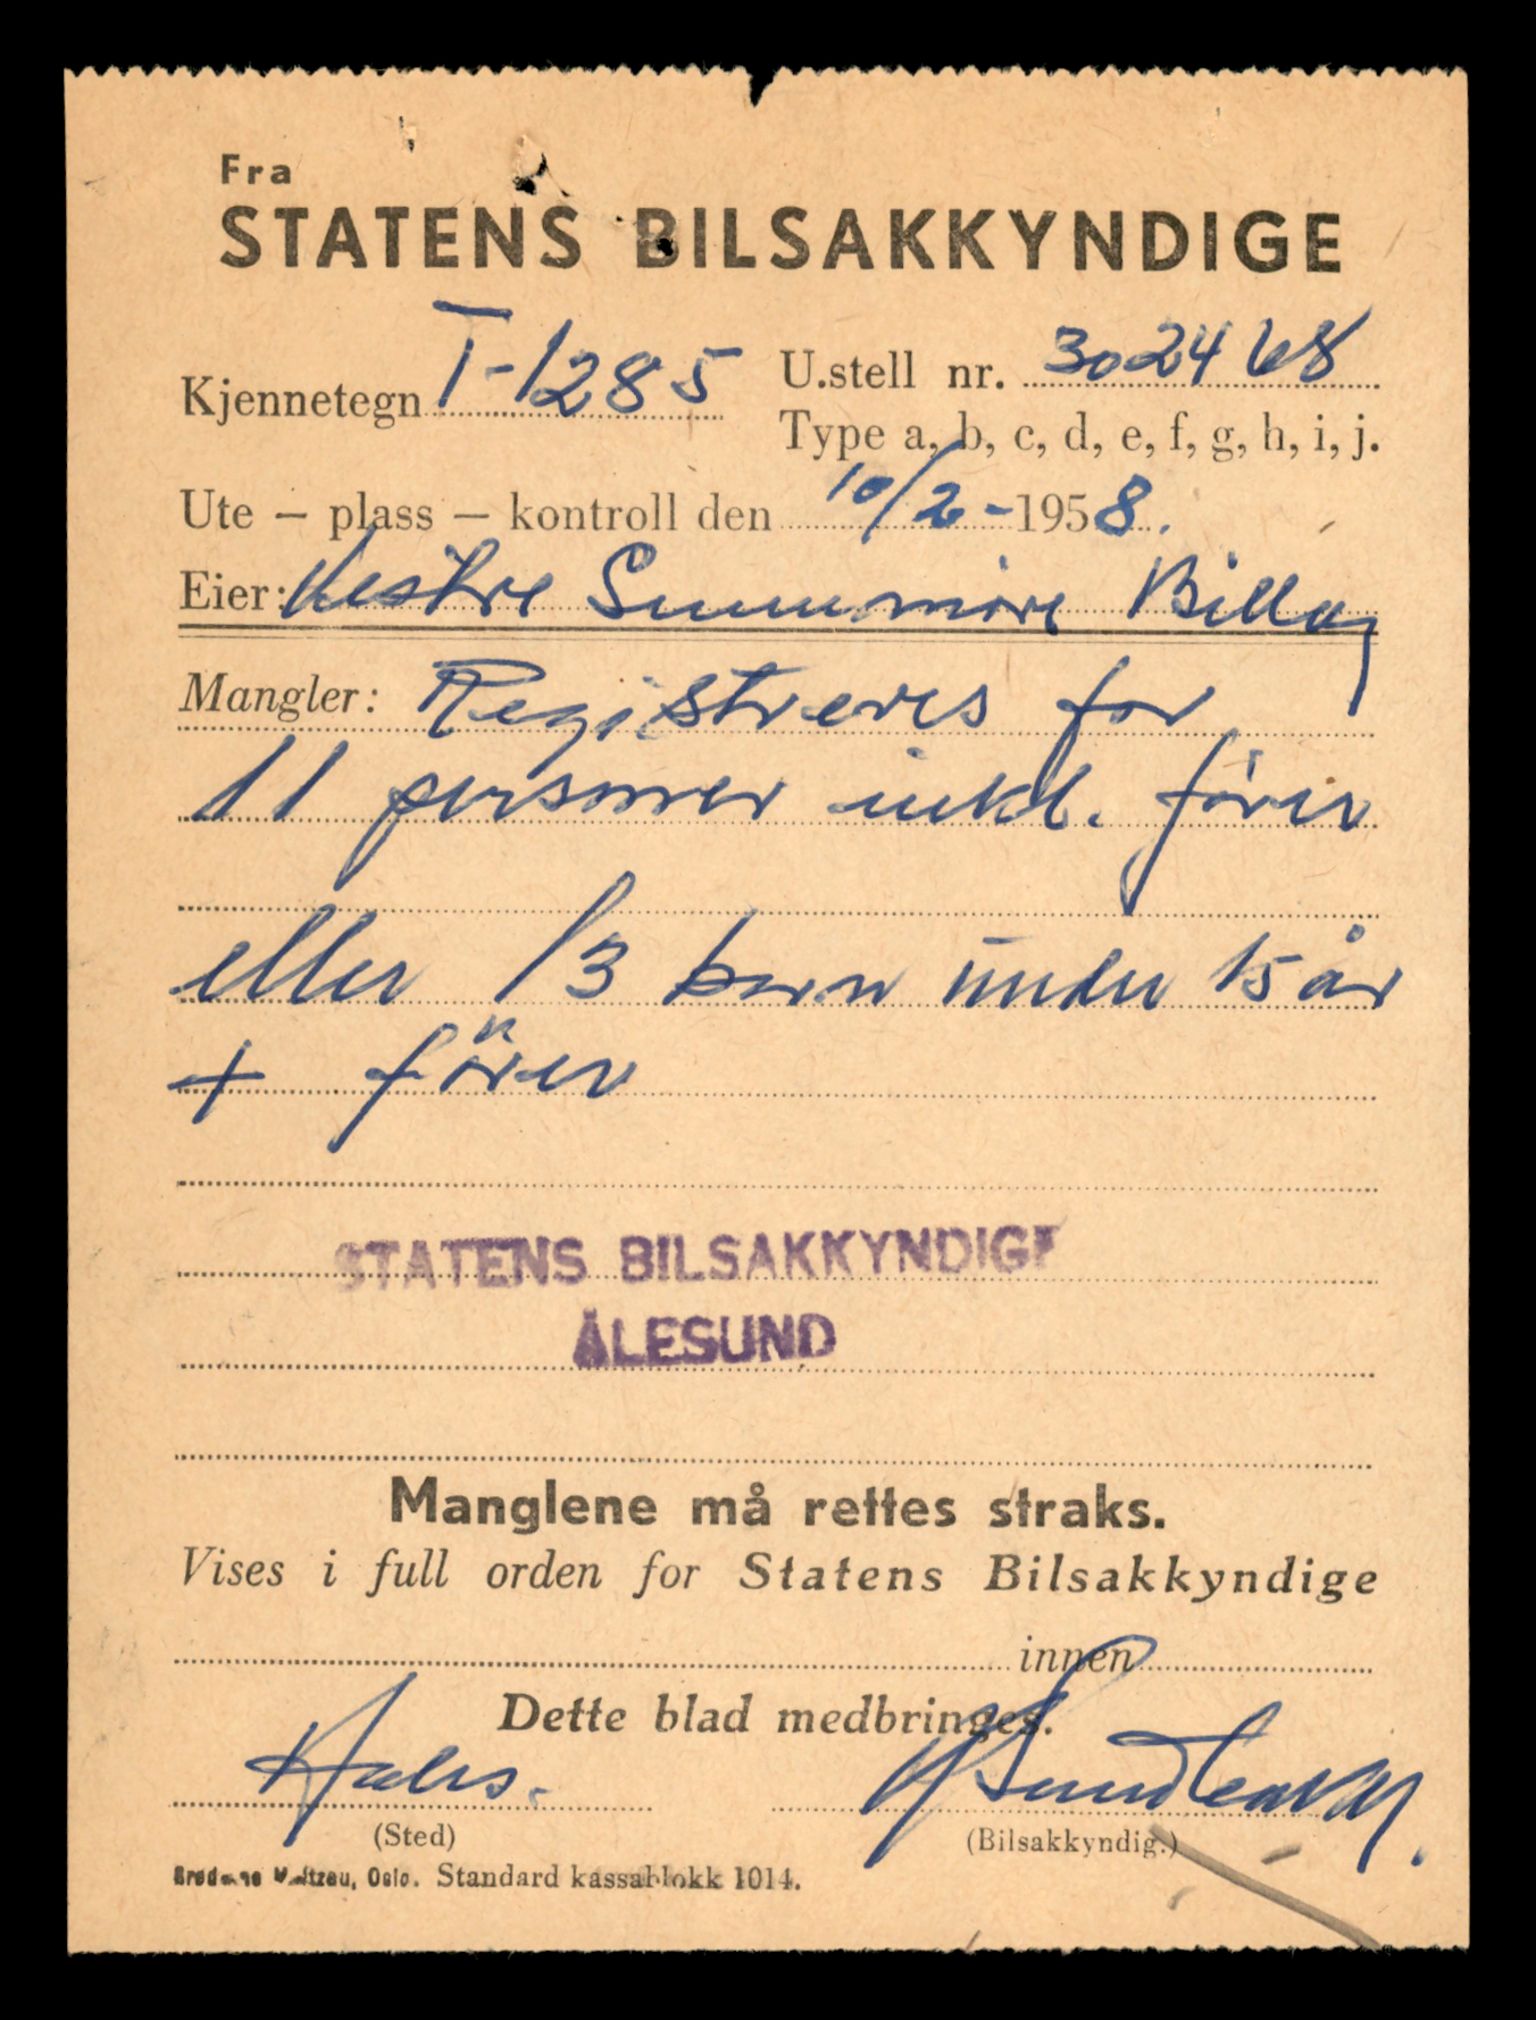 Fra
STATENS BILSAKKYNDIGE
Kjennetegn T-1285 U.stell nr. 302468
Type a, b, c, d, e, f, g, h, i, j.
Ute — plass — kontroll den 10/2-1958.
Eier: Vestre Sunnmøre Billag
Mangler: Registreres for
11 personer inkl. fører
eller 13 barn under 15 år
+ fører
STATENS BILSAKKYNDIGE
ÅLESUND
Manglene må rettes straks.
Vises i full orden for Statens Bilsakkyndige
innen
Dette blad medbringes.
(Sted) (Bilsakkyndig.)
Oslo. Standard kassablokk 1014.